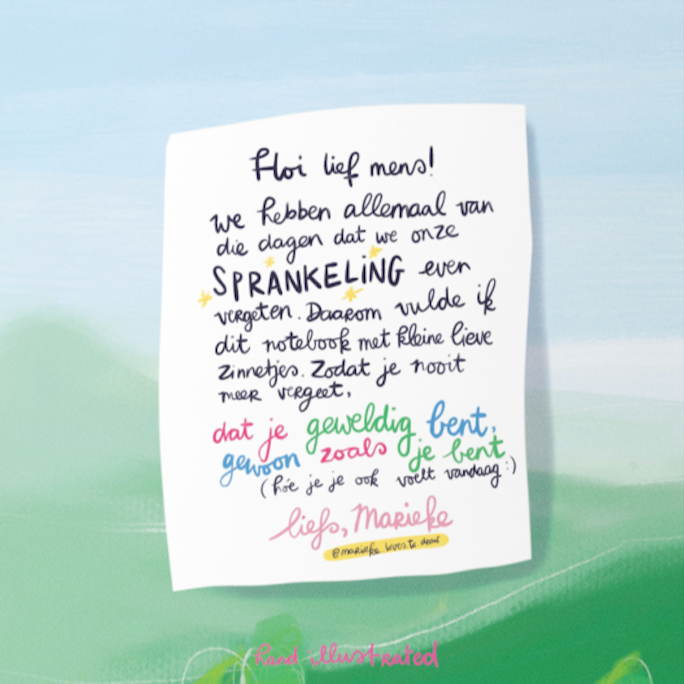 Hoi lief mens!
we hebben allemaal van
die dagen dat we onze
SPRANKELING even
vergeten. Daarom vulde ik
dit notebook met kleine lieve
zinnetjes. Zodat je nooit
meer vergeet,
dat je geweldig bent,
gewoon zoals je bent
(hóe je je ook voelt vandaag :)
liefs, Marieke
@marieke.loves.to.draw
hand illustrated